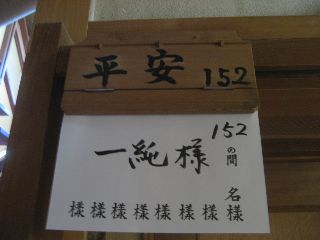 平安 152
152の間
一純様
名様
様様様様様様様様